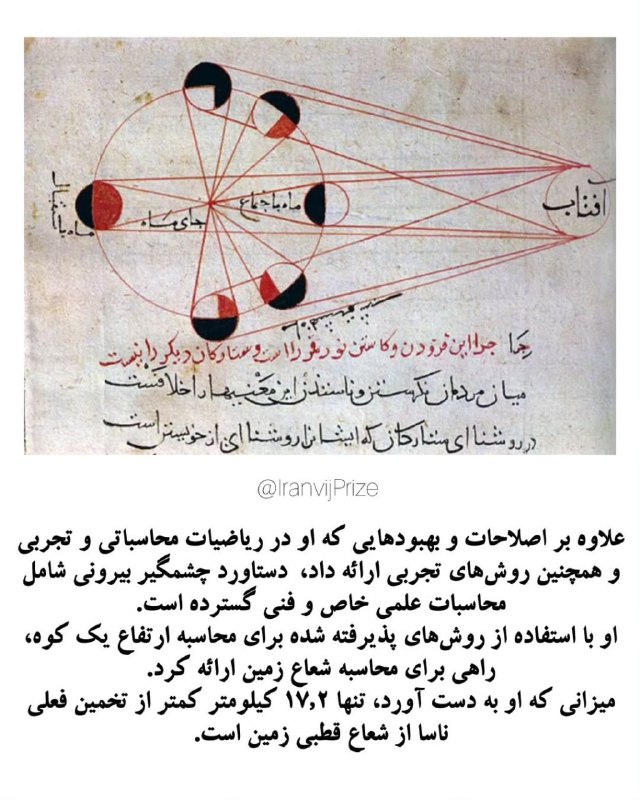 افتاب
ماه باجتماع
جای ماه
ماه باستقبال
چرا این فزودن و کاستن نور قمر را است و ستارگان دیگر را نیست
میان مردمان نگرستن و ناستدن این معنیها را خلافست
در روشنای ستارگان که ایشانرا روشنای از خویشتن است
@IranvijPrize
علاوه بر اصلاحات و بهبودهایی که او در ریاضیات محاسباتی و تجربی
و همچنین روش‌های تجربی ارائه داد، دستاورد چشمگیر بیرونی شامل
محاسبات علمی خاص و فنی گسترده است.
او با استفاده از روش‌های پذیرفته شده برای محاسبه ارتفاع یک کوه،
راهی برای محاسبه شعاع زمین ارائه کرد.
میزانی که او به دست آورد، تنها ۱۷٫۲ کیلومتر کمتر از تخمین فعلی
ناسا از شعاع قطبی زمین است.